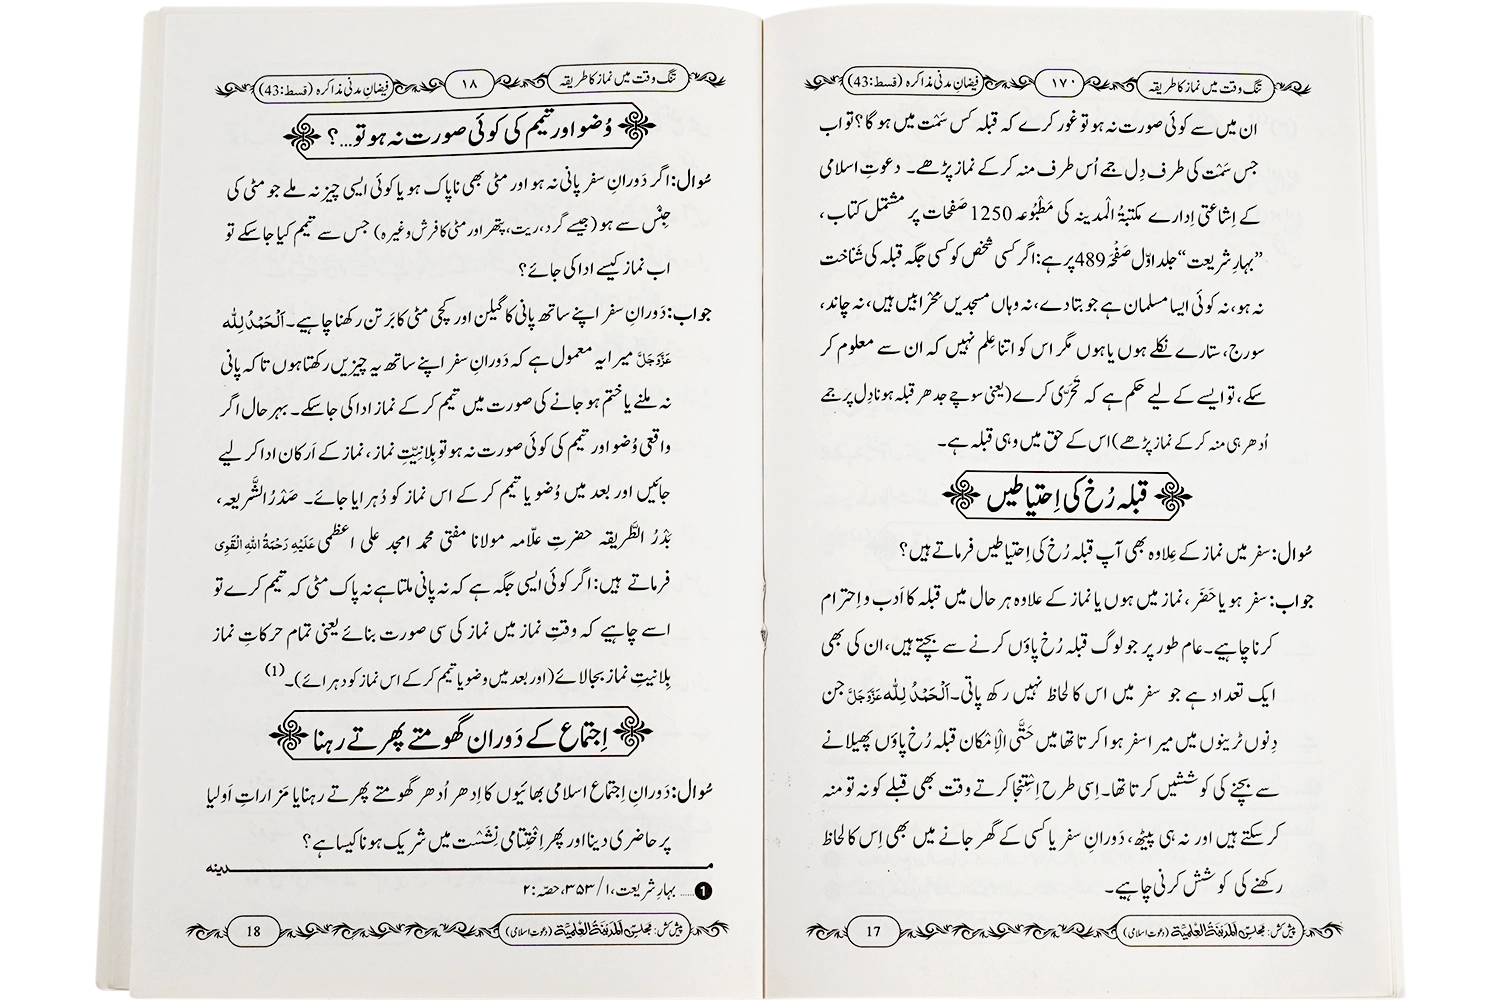 تنگ وقت میں نماز کا طریقہ
۱۷۰
فیضانِ مدنی مذاکرہ (قسط:43)
ان میں سے کوئی صورت نہ ہو تو غور کرے کہ قبلہ کس سَمْت میں ہو گا؟ تو اب
جس سَمْت کی طرف دِل جمے اُس طرف منہ کر کے نماز پڑھے۔ دعوتِ اسلامی
کے اِشاعتی اِدارے مکتبۃُ الْمدینہ کی مَطْبُوعہ 1250 صَفْحات پر مشتمل کتاب،
”بہارِ شریعت“ جلد اوّل صَفْحَہ 489 پر ہے: اگر کسی شخص کو کسی جگہ قبلہ کی شَناخت
نہ ہو، نہ کوئی ایسا مسلمان ہے جو بتا دے، نہ وہاں مسجدیں مَحْرابیں ہیں، نہ چاند،
سورج، ستارے نکلے ہوں یا ہوں مگر اس کو اتنا عِلم نہیں کہ ان سے معلوم کر
سکے، تو ایسے کے لیے حکم ہے کہ تَحَرِّی کرے (یعنی سوچے جدھر قبلہ ہونا دِل پر جمے
اُدھر ہی منہ کر کے نماز پڑھے) اس کے حق میں وہی قبلہ ہے۔
قبلہ رُخ کی اِحتیاطیں
سُوال: سفر میں نماز کے عِلاوہ بھی آپ قبلہ رُخ کی اِحتیاطیں فرماتے ہیں؟
جواب: سفر ہو یا حَضَر، نماز میں ہوں یا نماز کے علاوہ ہر حال میں قبلہ کا اَدب و اِحترام
کرنا چاہیے۔ عام طور پر جو لوگ قبلہ رُخ پاؤں کرنے سے بچتے ہیں، ان کی بھی
ایک تعداد ہے جو سفر میں اس کا لحاظ نہیں رکھ پاتی۔ اَلْحَمْدُ لِلّٰہ عَزَّوَجَلَّ جن
دِنوں ٹرینوں میں میرا سفر ہوا کرتا تھا میں حَتَّی الْاِمْکان قبلہ رُخ پاؤں پھیلانے
سے بچنے کی کوششیں کرتا تھا۔ اِسی طرح اِسْتِنْجا کرتے وقت بھی قبلے کو نہ تو منہ
کر سکتے ہیں اور نہ ہی پیٹھ، دَورانِ سفر یا کسی کے گھر جانے میں بھی اِس کا لحاظ
رکھنے کی کوشش کرنی چاہیے۔
پیش کش: مجلس المدینۃ العلمیۃ (دعوتِ اسلامی)
17
تنگ وقت میں نماز کا طریقہ
۱۸
فیضانِ مدنی مذاکرہ (قسط:43)
وُضو اور تیمم کی کوئی صورت نہ ہو تو...؟
سُوال: اگر دَورانِ سفر پانی نہ ہو اور مٹی بھی ناپاک ہو یا کوئی ایسی چیز نہ ملے جو مٹی کی
جِنْس سے ہو (جیسے گرد، ریت، پتھر اور مٹی کا فرش وغیرہ) جس سے تیمم کیا جا سکے تو
اب نماز کیسے ادا کی جائے؟
جواب: دَورانِ سفر اپنے ساتھ پانی کا گیلن اور کچی مٹی کا بَرتن رکھنا چاہیے۔ اَلْحَمْدُ لِلّٰہ
عَزَّوَجَلَّ میرا یہ معمول ہے کہ دَورانِ سفر اپنے ساتھ یہ چیزیں رکھتا ہوں تاکہ پانی
نہ ملنے یا ختم ہو جانے کی صورت میں تیمم کر کے نماز ادا کی جا سکے۔ بہر حال اگر
واقعی وُضو اور تیمم کی کوئی صورت نہ ہو تو بِلانِیّتِ نماز، نماز کے اَرکان ادا کر لیے
جائیں اور بعد میں وُضو یا تیمم کر کے اس نماز کو دُہرایا جائے۔ صَدْرُ الشَّریعہ،
بَدْرُ الطَّریقہ حضرتِ علّامہ مولانا مفتی محمد امجد علی اعظمی عَلَیْہِ رَحْمَۃُ اللہِ الْقَوِی
فرماتے ہیں: اگر کوئی ایسی جگہ ہے کہ نہ پانی ملتا ہے نہ پاک مٹی کہ تیمم کرے تو
اسے چاہیے کہ وقتِ نماز میں نماز کی سی صورت بنائے یعنی تمام حرکاتِ نماز
بِلانیتِ نماز بجا لائے (اور بعد میں وضو یا تیمم کر کے اس نماز کو دہرائے)۔ (1)
اِجتماع کے دَوران گھومتے پھرتے رہنا
سُوال: دَورانِ اِجتماع اسلامی بھائیوں کا اِدھر اُدھر گھومتے پھرتے رہنا یا مَزاراتِ اَولیا
پر حاضری دینا اور پھر اِخْتِتامی نِشَسْت میں شریک ہونا کیسا ہے؟
مـــدینہ
1 ..... بہارِ شریعت، ۱/ ۳۵۳، حصّہ: ۲
پیش کش: مجلس المدینۃ العلمیۃ (دعوتِ اسلامی)
18